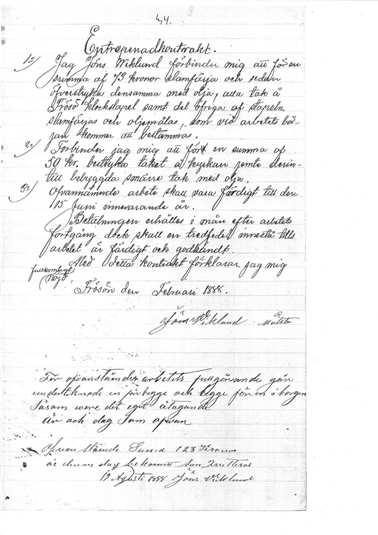 44.
Entrepenadkontrakt.
1) Jag Jöns Wiklund förbinder mig att för en
summa af 73 kronor slamfärja och sedan
öfverstryka densamma med olja, alla tak å
Frösö klockstapel samt det öfriga af stapeln
slamfärgas och oljemålas, som vid arbetets bör-
jan kommer att bestämmas.
2) Förbinder jag mig att för en summa af
50 kr. bestryka taket å kyrkan jemte deren-
till bebyggda smärre tak med olja.
3) Ofvannämnde arbete skall vara färdigt till den
15 Juni innevarande år.
Betalningen erhålles i mån efter arbetets
fortgång dock skall en tredjedel innestå tills
arbetet är färdigt och godkändt.
Med detta kontrakt förklarar jag mig
Frösön den Februari 1888.
Jöns Wiklund Målare
För ofvanstående arbetets fullgörande går
undertecknade en för begge och begge för en i borgen
såsom vore det eget åtagande
År och dag som ofvan
Ofvan stående Summa 123 Kronor
är denna dag bekommen som qvitteras
19 Agusti 1888 Jöns Viklund